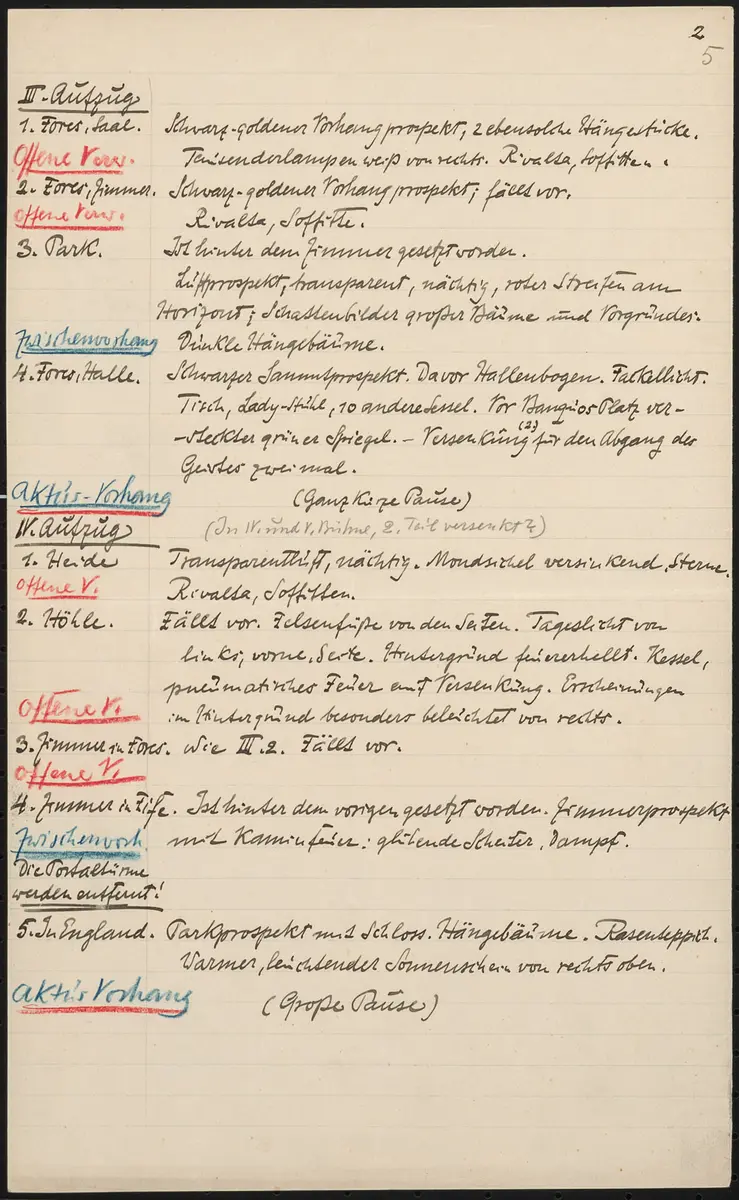 2
5
III. Aufzug
1. Fores, Saal. Schwarz-goldener Vorhangprospekt, 2 ebensolche Hängestücke.
Offene Verw. Tausenderlampen weiß von rechts. Rivalta, Soffitten.
2. Fores, Zimmer. Schwarz-goldener Vorhangprospekt; fällt vor.
offene Verw. Rivalta, Soffitte.
3. Park. Ist hinter dem Zimmer gesetzt worden.
Luftprospekt, transparent, nächtig, roter Streifen am
Horizont; Schattenbilder großer Bäume und Vorgründes.
Zwischenvorhang Dunkle Hängebäume.
4. Fores, Halle. Schwarzer Sammtprospekt. Davor Hallenbogen. Fackellicht.
Tisch, Lady-Stuhl, 10 andere Sessel. Vor Banquos Platz ver-
-steckter grüner Spiegel. – Versenkung (2) für den Abgang des
Geistes zweimal.
Aktus-Vorhang (Ganz kurze Pause)
IV. Aufzug (In IV. und V. Bühne, 2. Teil versenkt?)
1. Heide Transparentluft, nächtig. Mondsichel versinkend, Sterne.
offene V. Rivalta, Soffitten.
2. Höhle. Fällt vor. Felsenfüße von den Seiten. Tageslicht von
links, vorne, Seite. Hintergrund feuererhellt. Kessel,
pneumatisches Feuer auf Versenkung. Erscheinungen
offene V. im Hintergrund besonders beleichtet von rechts.
3. Zimmer in Fores. Wie III. 2. Fällt vor.
offene V.
4. Zimmer in Fife. Ist hinter dem vorigen gesetzt worden. Zimmerprospekt
Zwischenvorh. mit Kaminfeuer: glühende Scheiter, Dampf.
Die Portaltürme
werden entfernt!
5. In England. Parkprospekt mit Schloss. Hängebäume. Rasenteppich.
Warmer, leuchtender Sonnenschein von rechts oben.
Aktus Vorhang (Große Pause)